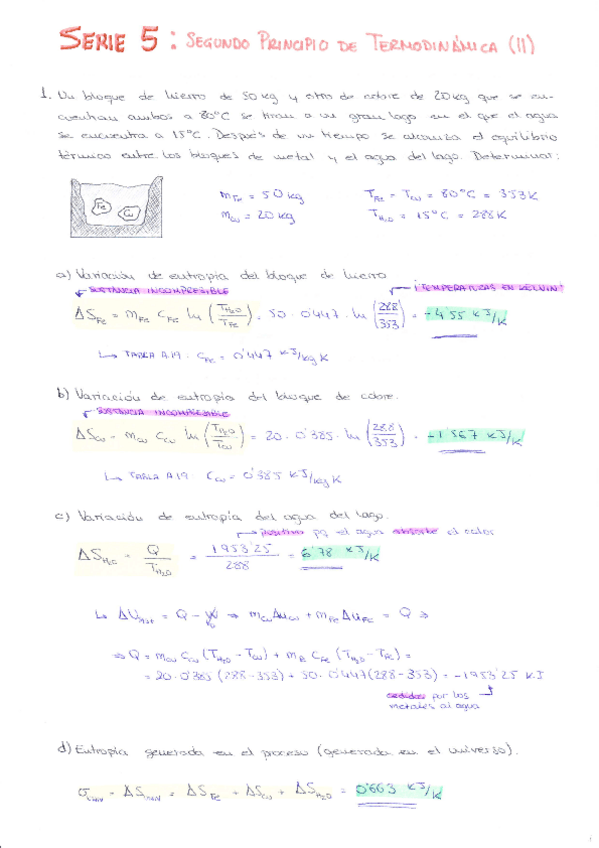 SERIE 5: SEGUNDO PRINCIPIO DE TERMODINÁMICA (II)
1. Un bloque de hierro de 50 kg y otro de cobre de 20 kg que se en-
cuentran ambos a 80°C se tiran a un gran lago en el que el agua
se encuentra a 15°C. Después de un tiempo se alcanza el equilibrio
térmico entre los bloques de metal y el agua del lago. Determinar:
Fe Cu
mFe = 50 kg TFe = TCu = 80°C = 353 K
mCu = 20 kg TH2O = 15°C = 288 K
a) Variación de entropía del bloque de hierro
SUSTANCIA INCOMPRESIBLE ¡TEMPERATURAS EN KELVIN!
ΔSFe = mFe CFe ln (TH2O/TFe) = 50 · 0'447 · ln (288/353) = -4'55 kJ/K
↳ TABLA A.19 · CFe = 0'447 kJ/kg K
b) Variación de entropía del bloque de cobre.
SUSTANCIA INCOMPRESIBLE
ΔSCu = mCu CCu ln (TH2O/TCu) = 20 · 0'385 · ln (288/353) = -1'567 kJ/K
↳ TABLA A.19 · CCu = 0'385 kJ/kg K
c) Variación de entropía del agua del lago.
positivo pq el agua absorbe el calor
ΔSH2O = Q/TH2O = 1953'25/288 = 6'78 kJ/K
↳ ΔUtot = Q - W ⇒ mCu ΔuCu + mFe ΔuFe = Q ⇒
⇒ Q = mCu CCu (TH2O - TCu) + mFe CFe (TH2O - TFe) =
= 20 · 0'385 (288 - 353) + 50 · 0'447 (288 - 353) = -1953'25 kJ
cedidos por los
metales al agua
d) Entropía generada en el proceso (generada en el universo).
σuniv = ΔSuniv = ΔSFe + ΔSCu + ΔSH2O = 0'663 kJ/K